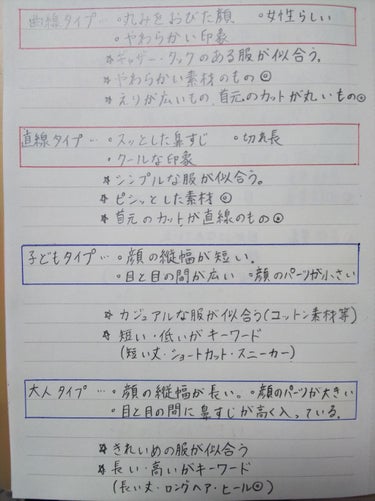 曲線タイプ…○丸みをおびた顔 ○女性らしい
○やわらかい印象
*ギャザー・タックのある服が似合う。
*やわらかい素材のもの◎
*えりが広いもの、首元のカットが丸いもの◎
直線タイプ…○スッとした鼻すじ ○切れ長
○クールな印象
*シンプルな服が似合う。
*ピシッとした素材◎
*首元のカットが直線のもの◎
子どもタイプ…○顔の縦幅が短い。
○目と目の間が広い ○顔のパーツが小さい
*カジュアルな服が似合う(コットン素材等)
*短い・低いがキーワード
(短い丈・ショートカット・スニーカー)
大人タイプ…○顔の縦幅が長い。○顔のパーツが大きい
○目と目の間に鼻すじが高く入っている。
*きれいめの服が似合う
*長い・高いがキーワード
(長い丈・ロングヘア・ヒール◎)